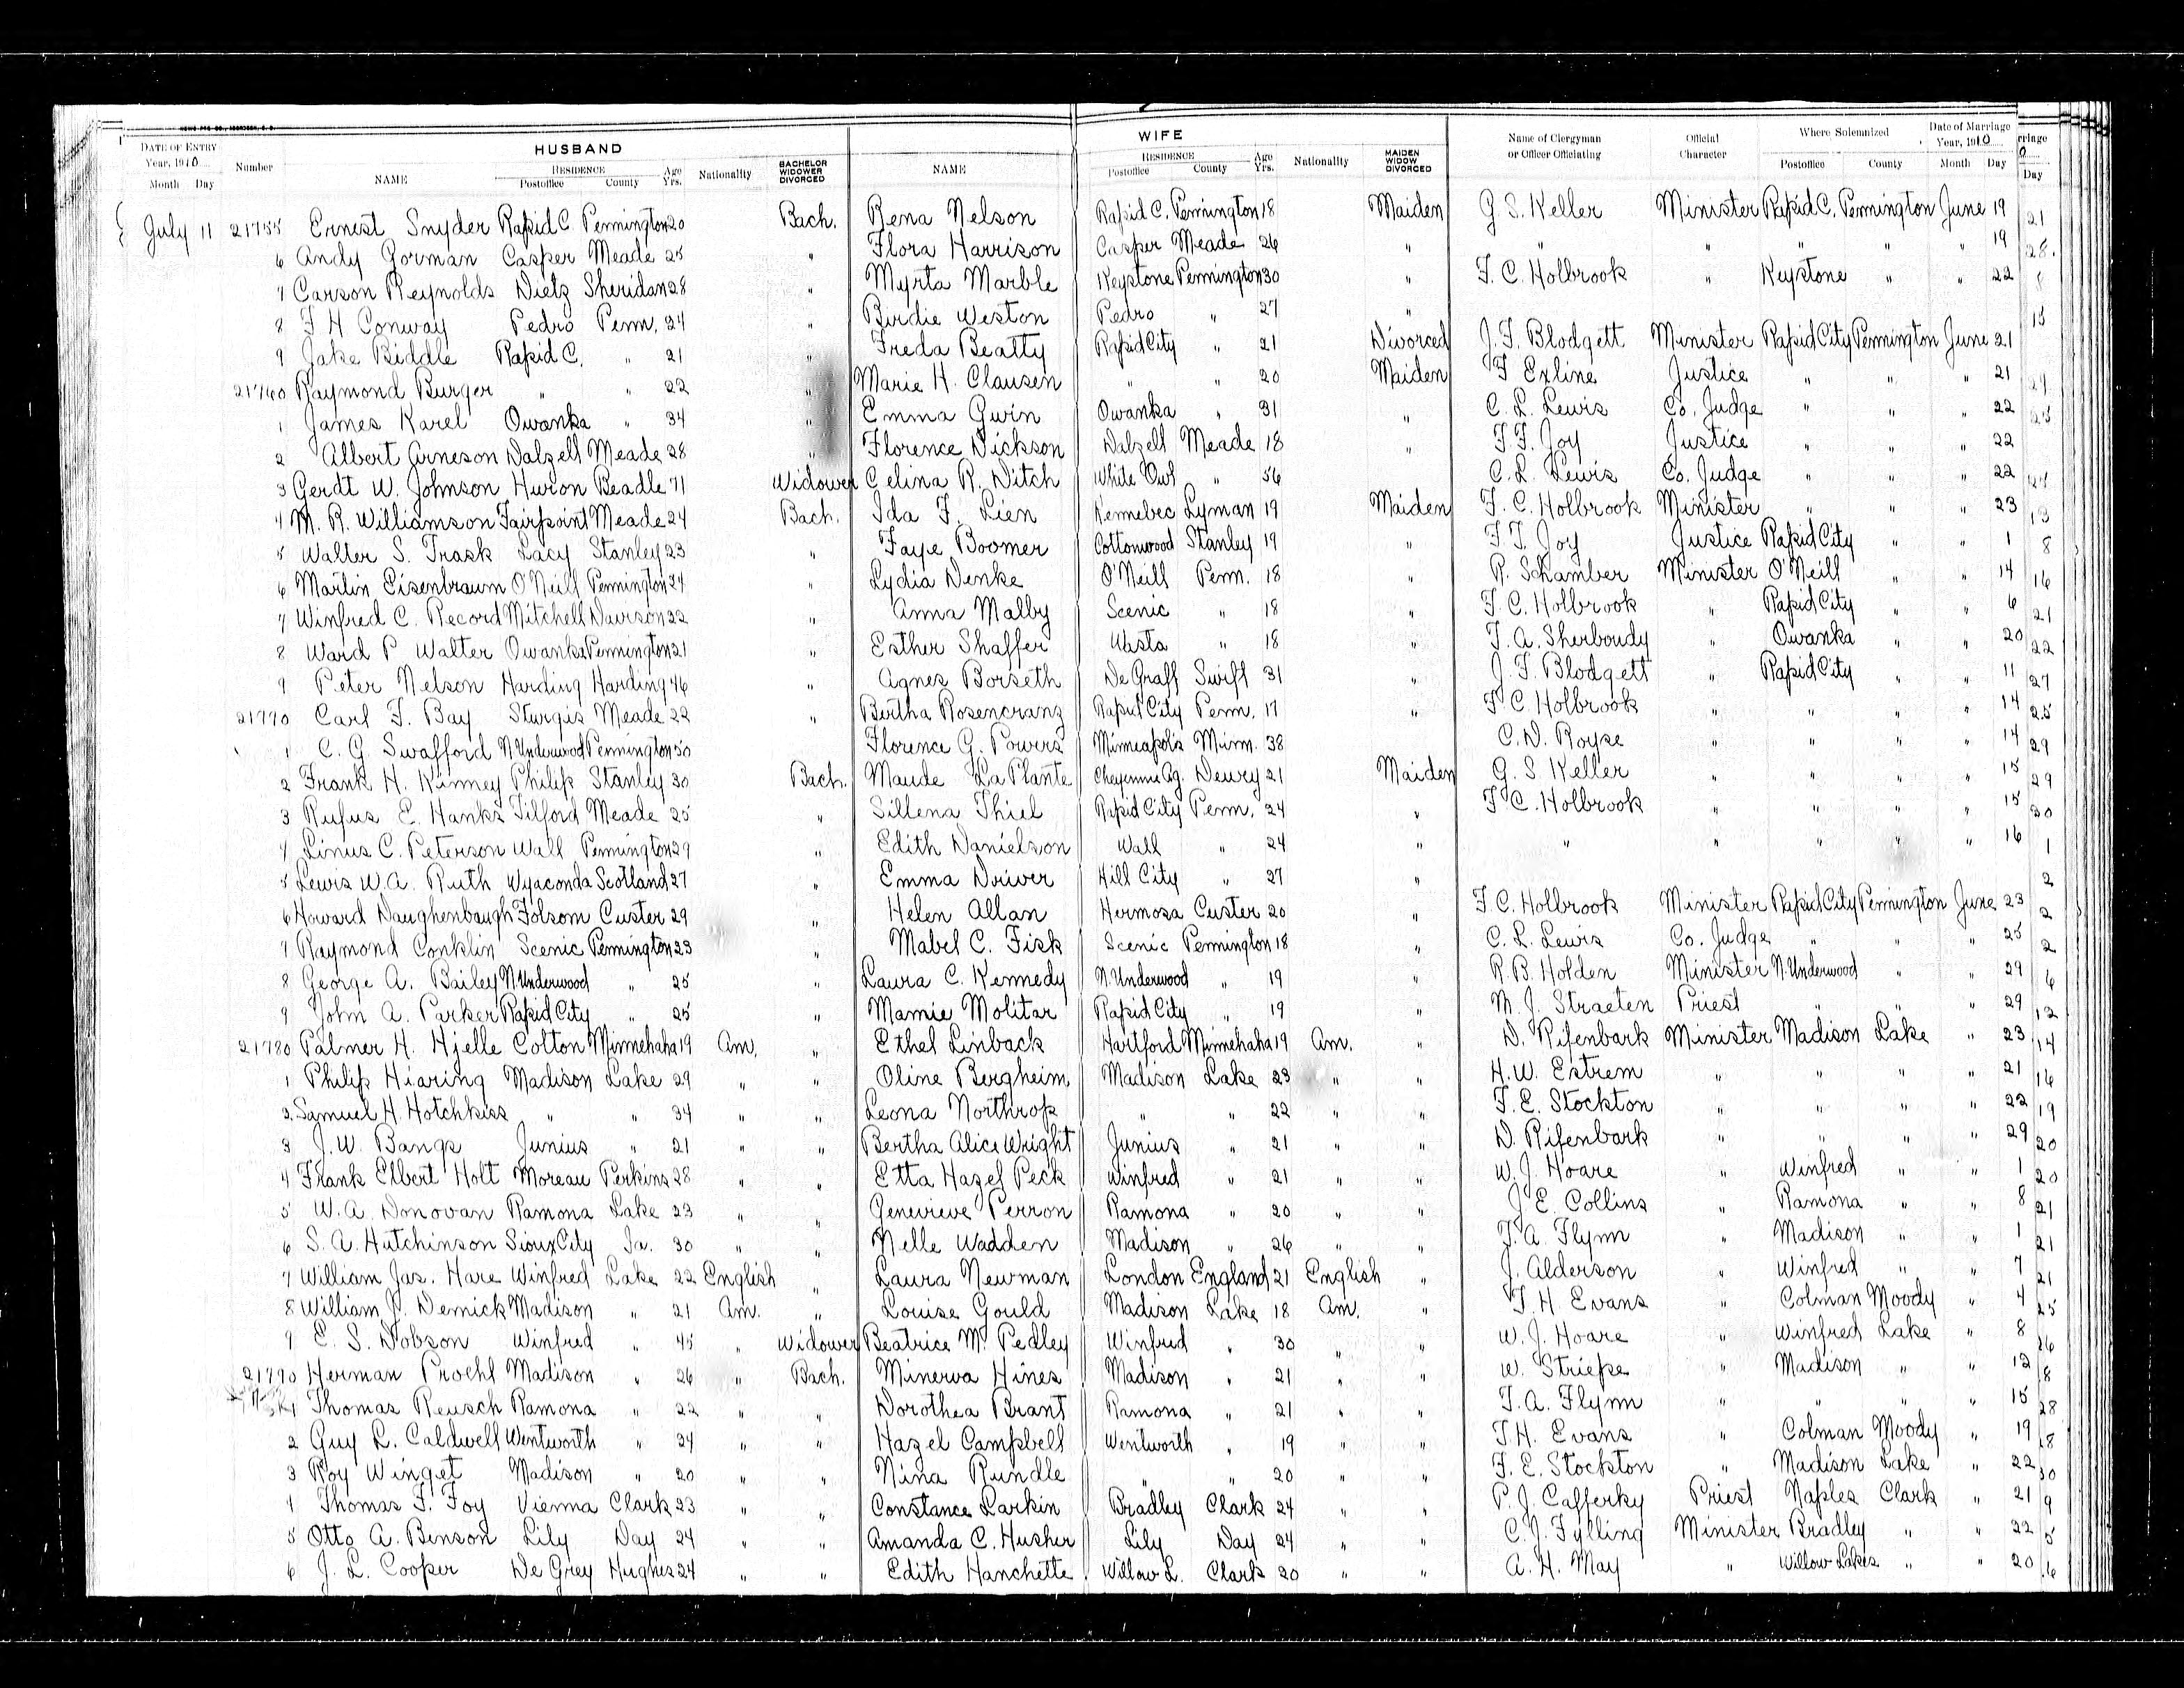 NEWS PTG CO., ABERDEEN, S. D.
HUSBAND WIFE
DATE OF ENTRY Year, 1910 Month Day Number NAME RESIDENCE Postoffice County Age Yrs. Nationality BACHELOR WIDOWER DIVORCED NAME RESIDENCE Postoffice County Age Yrs. Nationality MAIDEN WIDOW DIVORCED Name of Clergyman or Officer Officiating Official Character Where Solemnized Postoffice County Date of Marriage Year, 1910 Month Day rriage 0 Day
July 11 21755 Ernest Snyder Rapid C. Pennington 20 Bach. Rena Nelson Rapid C. Pennington 18 Maiden G. S. Keller Minister Rapid C. Pennington June 19 21
6 Andy Gorman Casper Meade 25 " Flora Harrison Casper Meade 26 " " " " " " 19 28.
7 Carson Reynolds Dietz Sheridan 28 " Myrta Marble Keystone Pennington 30 " F. C. Holbrook " Keystone " " 22 8
8 F H Conway Pedro Penn. 24 " Birdie Weston Pedro " 27 " 15
9 Jake Biddle Rapid C. " 21 " Freda Beatty Rapid City " 21 Divorced J. F. Blodgett Minister Rapid City Pennington June 21
21760 Raymond Burger " " 22 " Marie H. Clausen " " 20 Maiden F Exline Justice " " " 21
1 James Karel Owanka " 34 " Emma Gwin Owanka " 31 " C. L. Lewis Co. Judge " " " 22
2 Albert Arneson Dalzell Meade 28 " Florence Dickson Dalzell Meade 18 " F. F. Joy Justice " " " 22
3 Gerdt W. Johnson Huron Beadle 71 Widower Celina R. Ditch White Owl " 56 C. L. Lewis Co. Judge " " " 22
4 M. R. Williamson Fairpoint Meade 24 Bach. Ida F. Lien Kennebec Lyman 19 Maiden F. C. Holbrook Minister " " " 23 13
5 Walter S. Trask Lacy Stanley 23 " Faye Boomer Cottonwood Stanley 19 " F. F. Joy Justice Rapid City " " 1 8
6 Martin Eisenbraum O'Neill Pennington 24 " Lydia Denke O'Neill Penn. 18 " R. Schamber Minister O'Neill " " 14 16
7 Winfred C. Record Mitchell Davison 22 " Anna Malby Scenic " 18 " F. C. Holbrook " Rapid City " " 6 21
8 Ward P Walter Owanka Pennington 21 " Esther Shaffer Wasta " 18 " T. A. Sherboudy " Owanka " " 20 22
9 Peter Nelson Harding Harding 46 " Agnes Borseth De Graff Swift 31 " J. F. Blodgett " Rapid City " " 11 27
21770 Carl F. Bay Sturgis Meade 22 " Bertha Rosencranz Rapid City Penn. 17 " F C. Holbrook " " " " 14 25
1 C. G. Swafford N. Underwood Pennington 50 Florence G. Powers Minneapolis Minn. 38 C. D. Royse " " " " 14 29
2 Frank H. Kinney Philip Stanley 30 Bach. Maude La Plante Cheyenne Ag. Dewey 21 Maiden G. S. Keller " " " " 15 29
3 Rufus E. Hanks Tilford Meade 25 " Sillena Thiel Rapid City Penn. 24 " F C. Holbrook " " " " 15 30
4 Linus C. Peterson Wall Pennington 29 " Edith Danielson Wall " 24 " " " " " " 16 1
5 Lewis W. A. Ruth Wyaconda Scotland 27 " Emma Driver Hill City " 27 " 2
6 Howard Daughenbaugh Folsom Custer 29 " Helen Allan Hermosa Custer 20 " F. C. Holbrook Minister Rapid City Pennington June 23 2
7 Raymond Conklin Scenic Pennington 23 " Mabel C. Fisk Scenic Pennington 18 " C. L. Lewis Co. Judge " " " 25 2
8 George A. Bailey N. Underwood " 25 " Laura C. Kennedy N. Underwood " 19 " R. B. Holden Minister N. Underwood " " 29 6
9 John A. Parker Rapid City " 25 " Mamie Molitar Rapid City " 19 " M. J. Straeten Priest " " " 29 12
21780 Palmer H. Hjelle Colton Minnehaha 19 Am. " Ethel Linback Hartford Minnehaha 19 Am. " D. Rifenbark Minister Madison Lake " 23 14
1 Philip Hiaring Madison Lake 29 " " Oline Bergheim Madison Lake 23 " " H. W. Estrem " " " " 21 16
2 Samuel H. Hotchkiss " " 34 " " Leona Northrop " " 22 " " F. E. Stockton " " " " 22 19
3 J. W. Bangs Junius " 21 " " Bertha Alice Wright Junius " 21 " " D. Rifenbark " " " " 29 20
4 Frank Elbert Holt Moreau Perkins 28 " " Etta Hazel Peck Winfred " 21 " " W. J. Hoare " Winfred " " 1 20
5 W. A. Donovan Ramona Lake 23 " " Genevieve Perron Ramona " 20 " " J E. Collins " Ramona " " 8 21
6 S. A. Hutchinson Sioux City Ia. 30 " " Nelle Wadden Madison " 26 " " T. A. Flynn " Madison " " 1 21
7 William Jas. Hare Winfred Lake 22 English " Laura Newman London England 21 English " J. Alderson " Winfred " " 7 21
8 William J. Demick Madison " 21 Am. " Louise Gould Madison Lake 18 Am. " T. H. Evans " Colman Moody " 4 25
9 E. S. Dobson Winfred " 45 " Widower Beatrice M. Pedley Winfred " 30 " " W. J. Hoare " Winfred Lake " 8 26
21790 Herman Proehl Madison " 26 " Bach. Minerva Hines Madison " 21 " " W. Striepe " Madison " " 12 8
1 Thomas Reusch Ramona " 22 " " Dorothea Brant Ramona " 21 " " T. A. Flynn " " " " 15 28
2 Guy L. Caldwell Wentworth " 24 " " Hazel Campbell Wentworth " 19 " " T H. Evans " Colman Moody " 19 18
3 Roy Winget Madison " 20 " " Nina Rundle " " 20 " " F. E. Stockton " Madison Lake " 22 30
4 Thomas F. Foy Vienna Clark 23 " " Constance Larkin Bradley Clark 24 " " P. J. Cafferky Priest Naples Clark " 21 9
5 Otto A. Benson Lily Day 24 " " Amanda C. Husher Lily Day 24 " " C. J. Fylling Minister Bradley " " 22 5
6 J. L. Cooper De Grey Hughes 24 " " Edith Hanchette Willow L. Clark 20 " " A. H. May " Willow Lakes " " 20 6